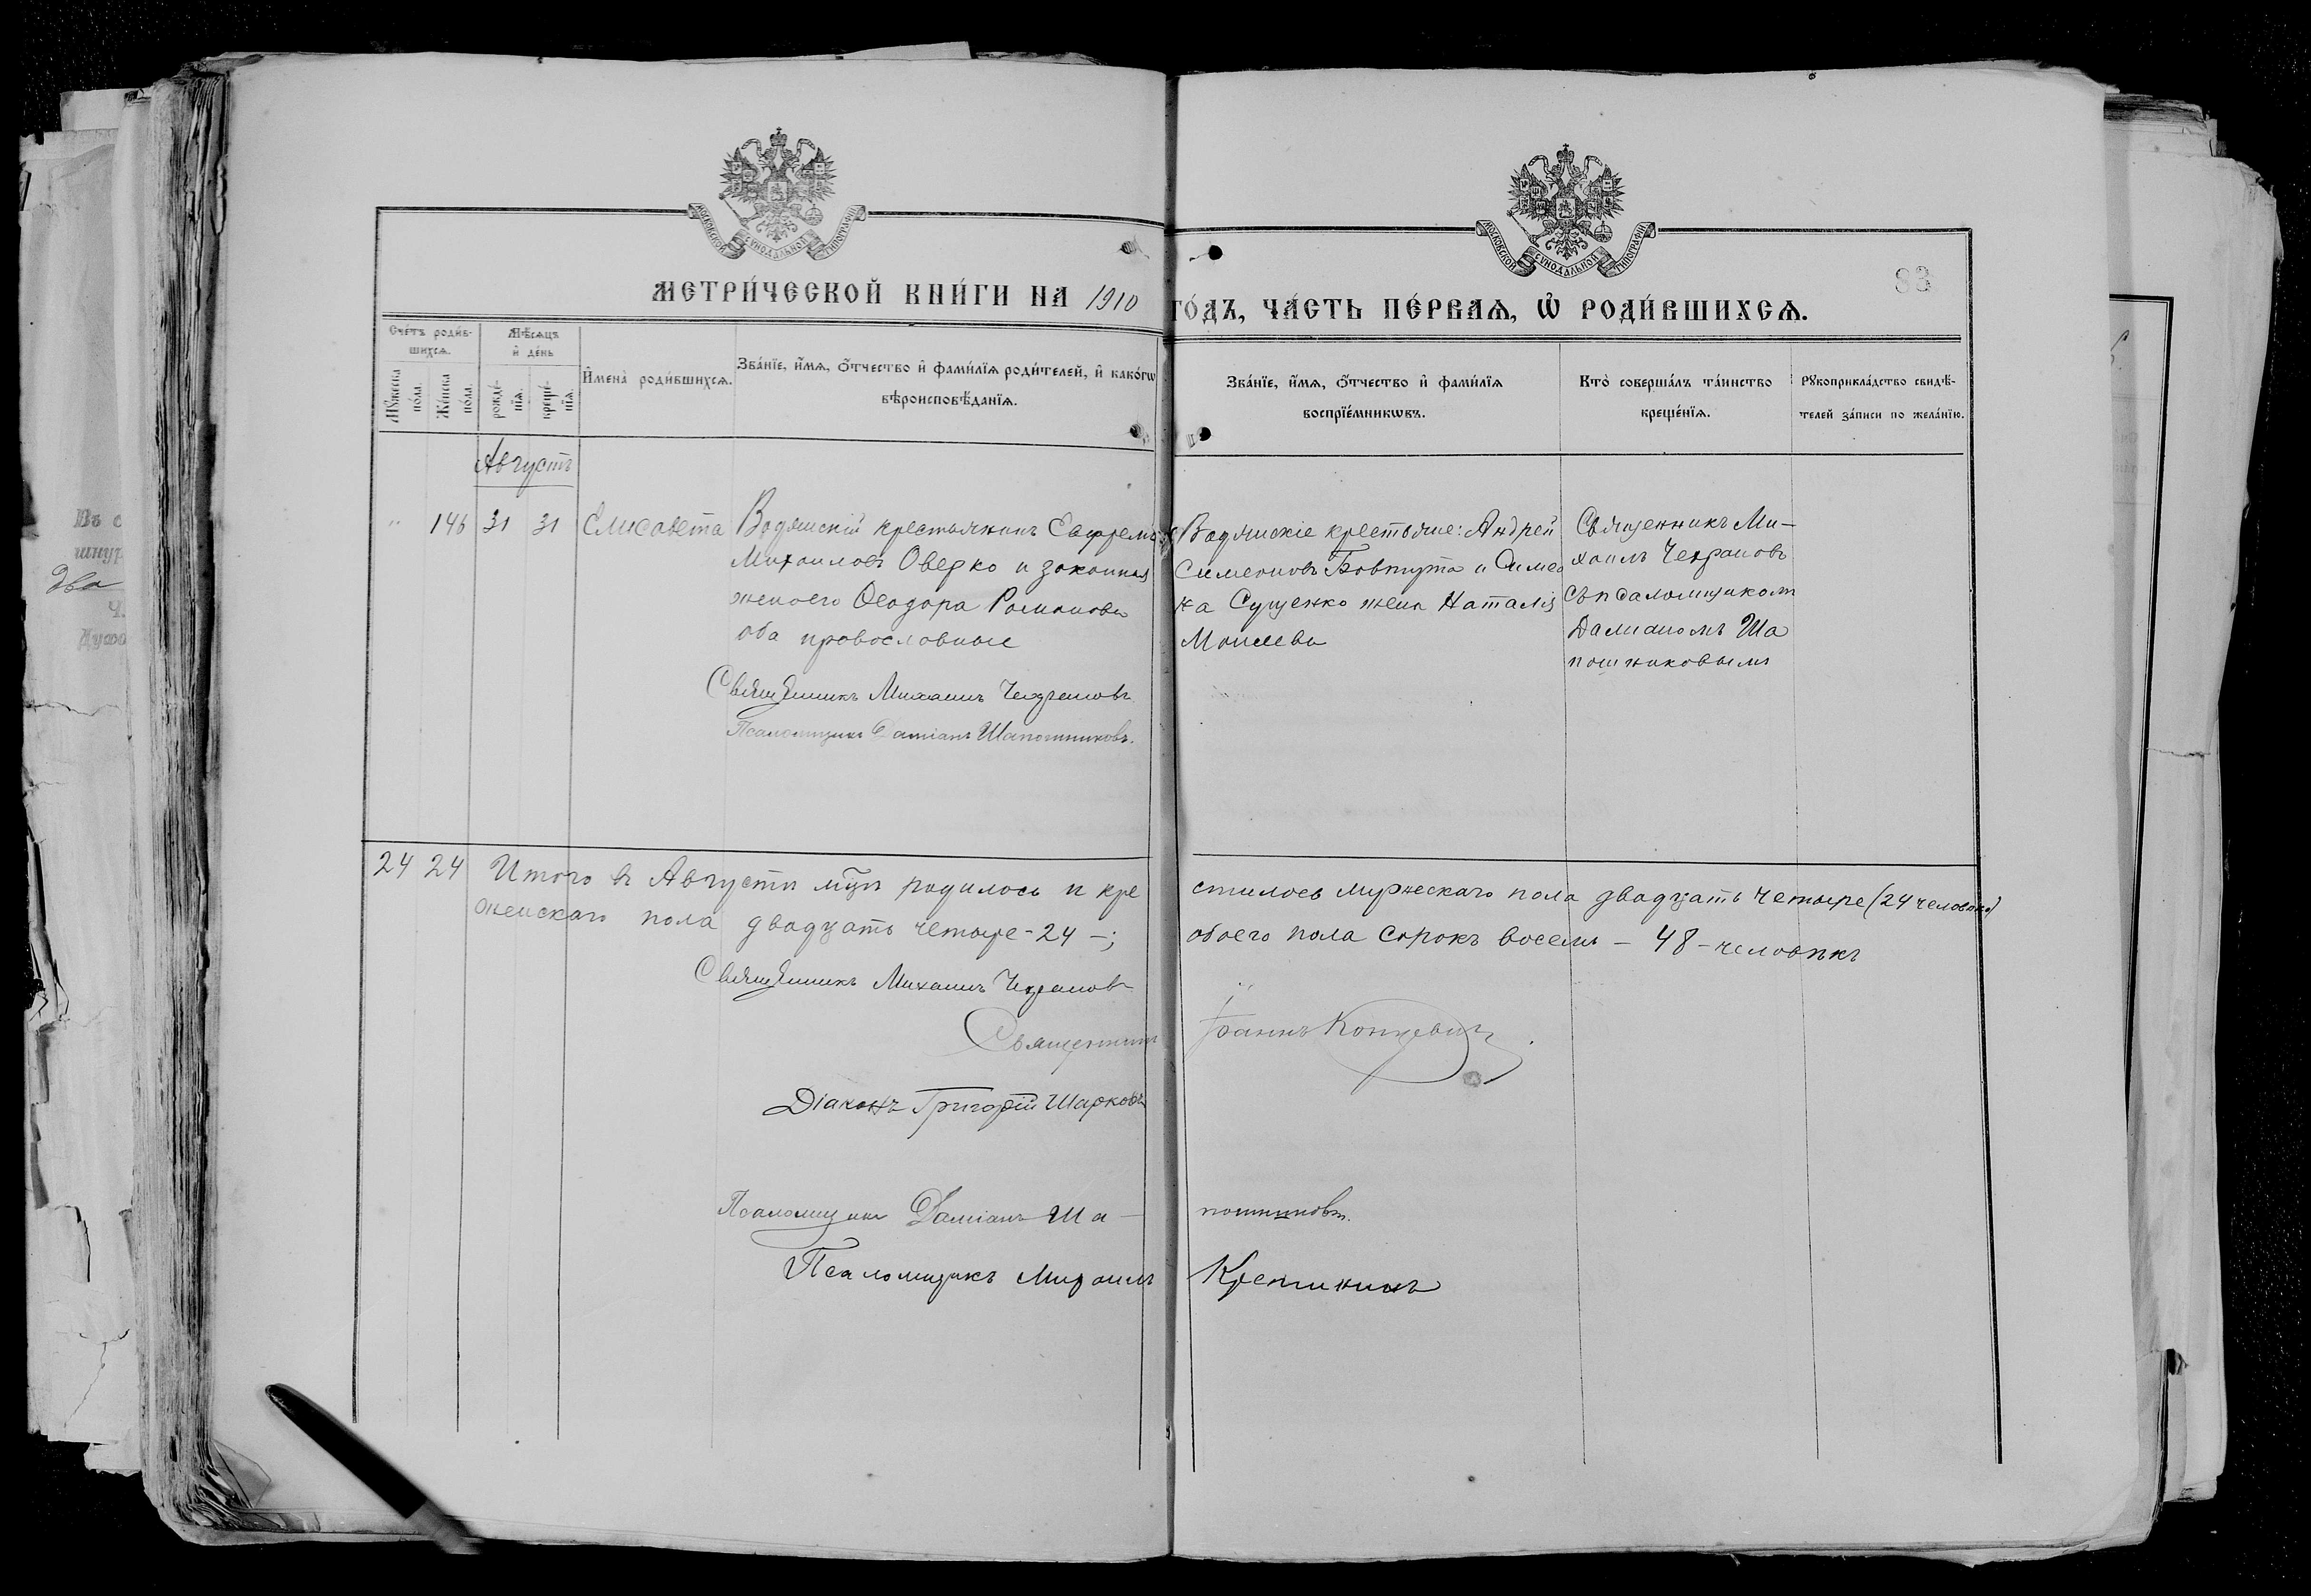 МОСКОВСКОЙ СѴНОДАЛЬНОЙ ТИПОГРАФІИ
МОСКОВСКОЙ СѴНОДАЛЬНОЙ ТИПОГРАФІИ
83
МЕТРИ́ЧЕСКОЙ КНИ́ГИ НА 1910
ГО́ДЪ, ЧА́СТЬ ПЕ́РВАѦ, Ѡ҆ РОДИ́ВШИХСѦ.
Сче́тъ роди́в-
шихсѧ.
Мꙋ́жеска по́ла.
Же́нска по́ла.
Мѣ́сѧцъ
и҆ де́нь
рожде́-
нїѧ.
креще́-
нїѧ.
И҆мена̀ роди́вшихсѧ.
Зва́нїе, и҆́мѧ, ѻ҆́тчество и҆ фами́лїѧ роди́телей, и҆ како́гѡ
вѣроисповѣ́данїѧ.
Зва́нїе, и҆́мѧ, ѻ҆́тчество и҆ фами́лїѧ
воспрїе́мникѡвъ.
Кто̀ соверша́лъ та́инство
креще́нїѧ.
Рꙋкоприкла́дство свидѣ́-
телей за́писи по жела́нїю.
Августъ
" 146 31 31 Елисавета
Водянскій крестьянинъ Евфремъ
Михаиловъ Оверко и законная
жена его Ѳеодора Романова
оба православные
Священникъ Михаилъ Чехрановъ
Псаломщикъ Даміанъ Шапошниковъ.
Водянскіе крестьяне: Андрей
Симеоновъ Товпыга и Симео
на Сущенко жена Наталія
Моисеева
Священникъ Ми-
хаилъ Чехрановъ
съ псаломщикомъ
Даміаномъ Ша
пошниковымъ
24 24 Итого въ Августѣ мцѣ родилось и кре
стилось мужескаго пола двадцать четыре (24 человѣка)
женскаго пола двадцать четыре - 24 -;
обоего пола сорокъ восемь - 48 - человѣкъ
Священникъ Михаилъ Чехрановъ
Священникъ Іоаннъ Концевичъ
Діаконъ Григорій Шарковъ
Псаломщикъ Даміанъ Ша-
пошниковъ.
Псаломщикъ Михаилъ
Въ с
шнур
два